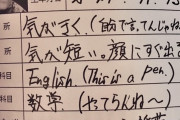 所 気が了く.(的です。てんじゃね
所 気が短い。顔にすぐ出る
科目 English.(This is a pen.)
科目 数学 (やてらんね〜)